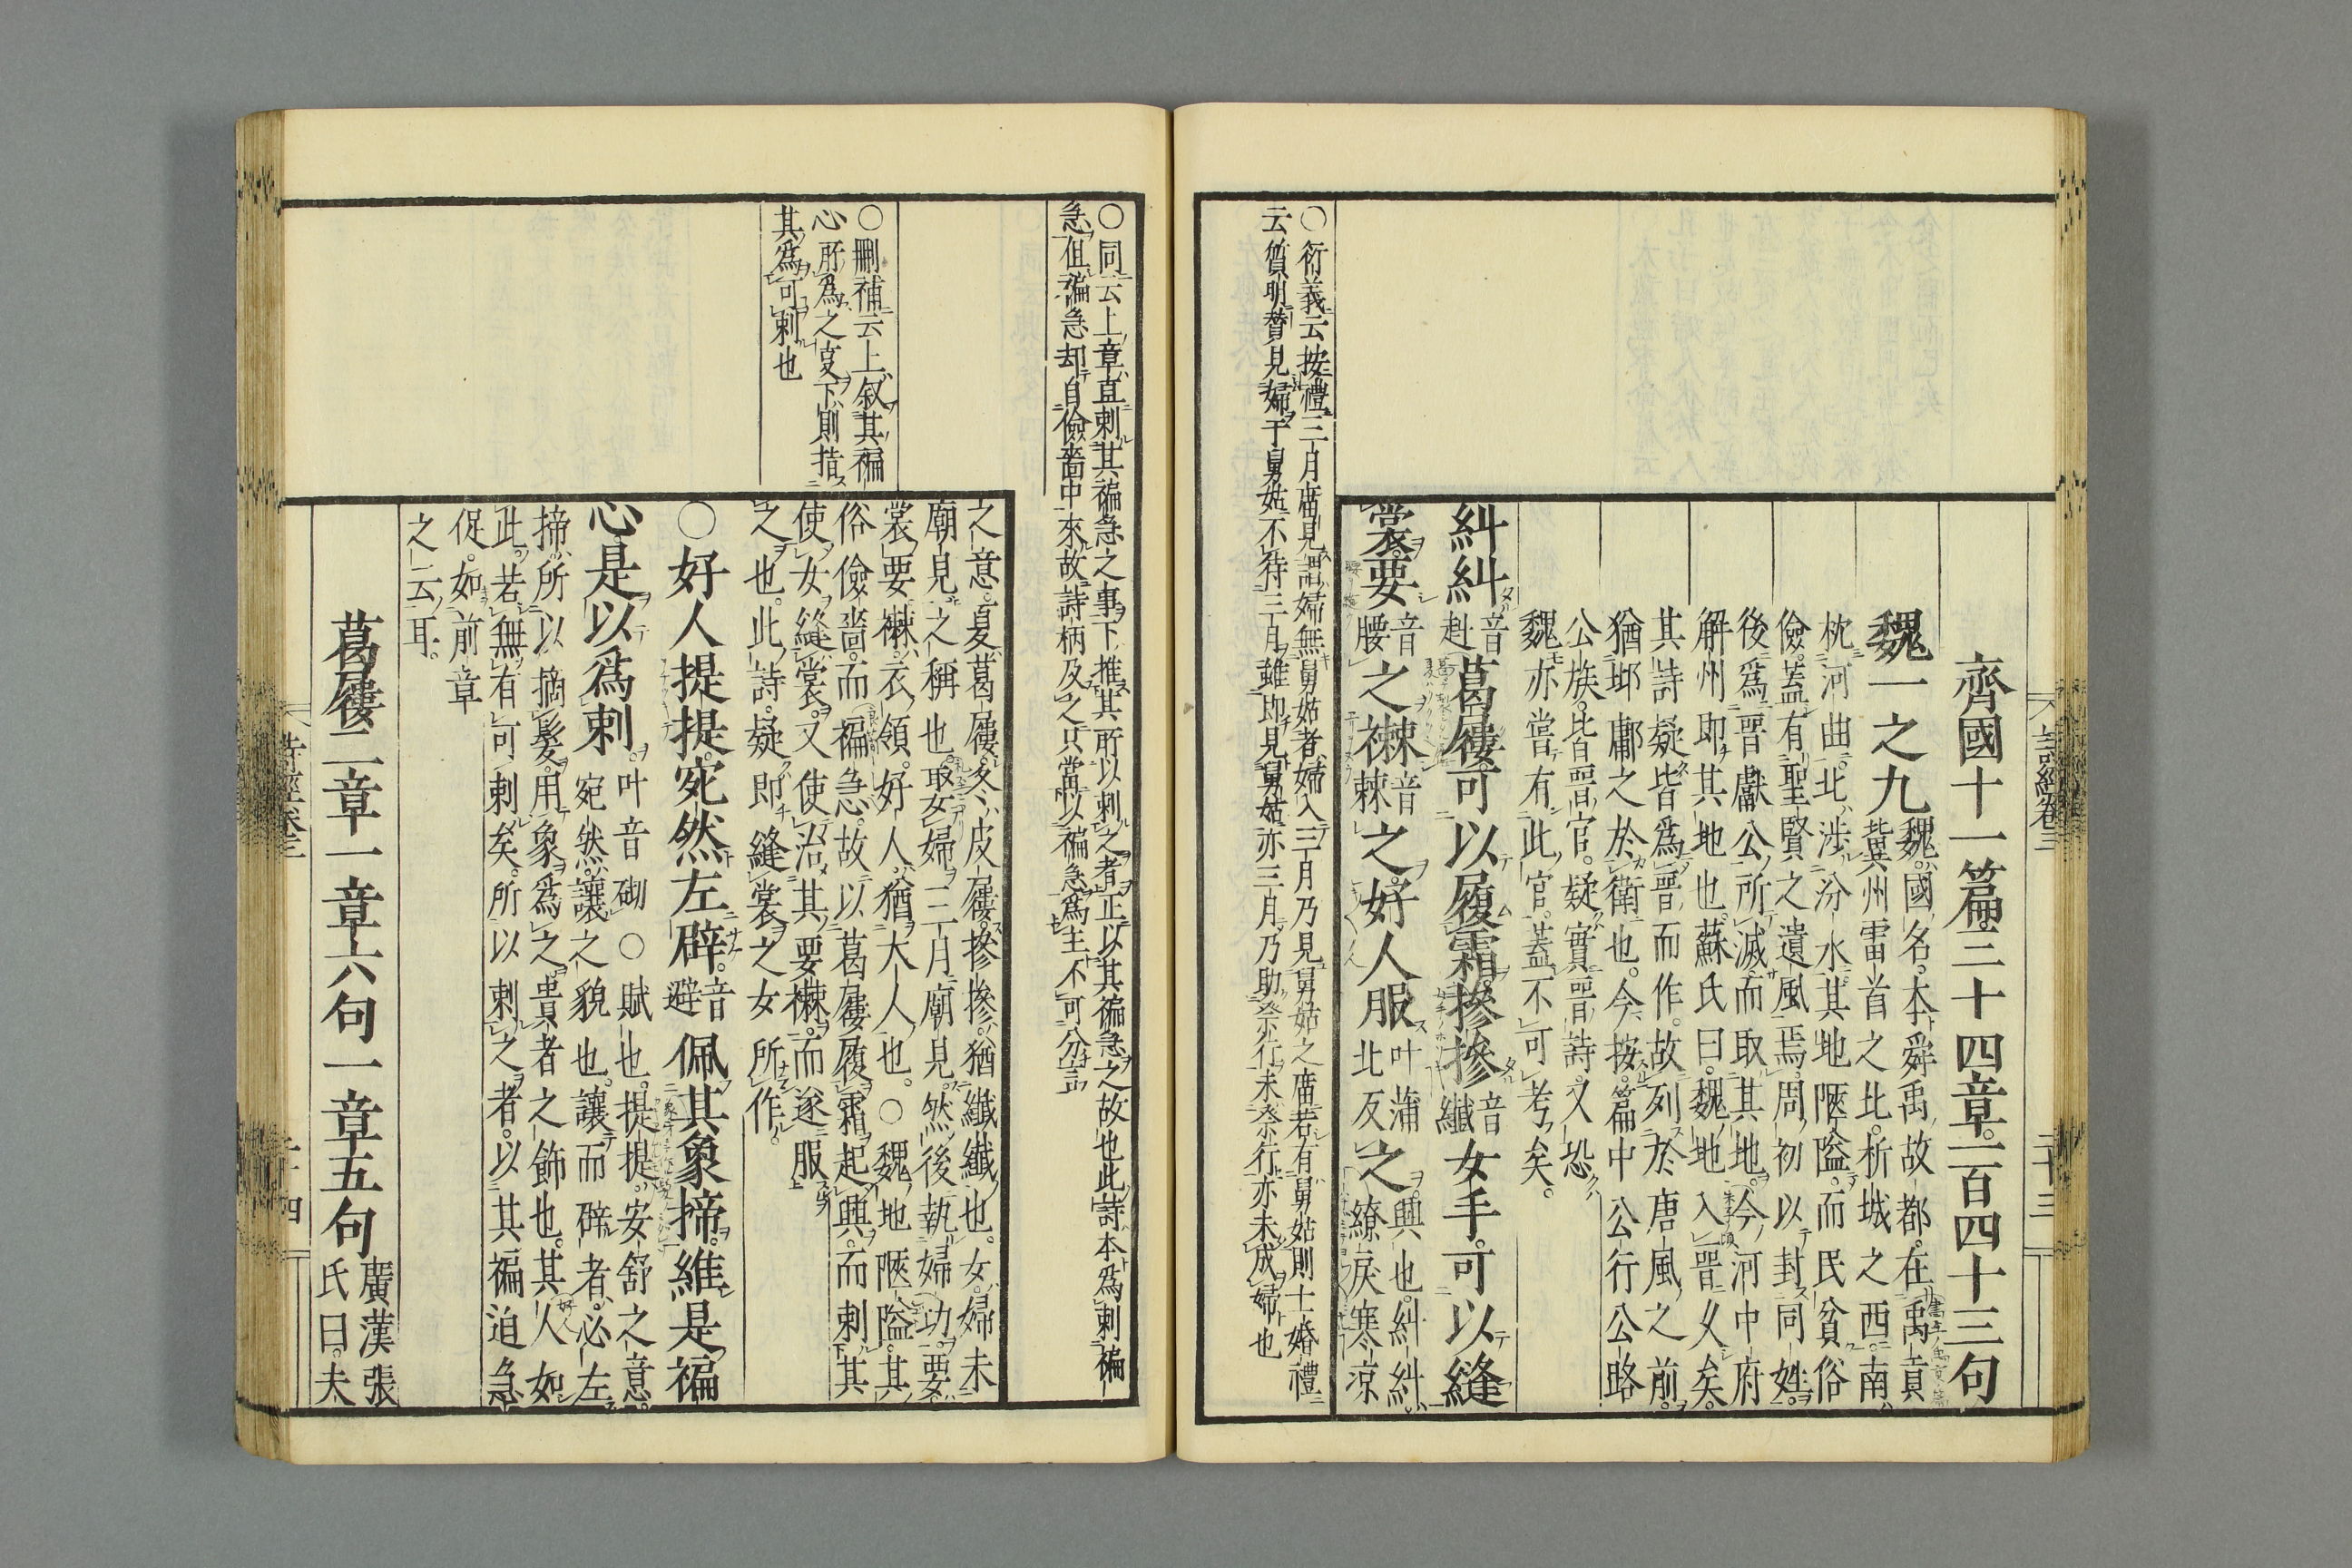 詩經卷三
二十三
齊國十一篇三十四章一百四十三句
魏一之九魏國名本舜禹故都在禹貢
冀州雷首之北析城之西南
枕河曲北涉汾水其地陿隘而民貧俗
儉蓋有聖賢之遺風焉周初以封同姓
後爲晉獻公所滅而取其地今河中府
解州即其地也蘇氏曰魏地入晉乆矣
其詩疑皆爲晉而作故列於唐風之前
猶邶鄘之於衛也今按篇中公行公路
公族皆晉官疑實晉詩又恐
魏亦嘗有此官蓋不可考矣
糾糾音赳葛屨可以履霜摻摻音纖女手可以縫
裳要音腰之襋音棘之好人服叶蒲北反之興也糾糾繚戾寒凉
○衍義云按禮三月庿見謂婦無舅姑者婦入三月乃見舅姑之庿若有舅姑則士婚禮
云質明贊見婦于舅姑不待三月雖即見舅姑亦三月乃助祭行未祭行亦未成婦也
○同云上章直刺其褊急之事下推其所以刺之者正以其褊急之故也此詩本爲刺褊
急但褊急却自儉嗇中來故詩柄及之只當以褊急爲主不可分言
之意夏葛屨冬皮屨摻摻猶纖纖也女婦未
廟見之稱也娶婦三月廟見然後執婦功要
裳要襋衣領好人猶大人也○魏地陿隘其
俗儉嗇而褊急故以葛屨履霜起興而刺其
使女縫裳又使治其要襋而遂服
之也此詩疑即縫裳之女所作
○刪補云上叙其褊
心所爲之叓下則指
其爲可刺也
○好人提提宛然左辟音避佩其象揥維是褊
心是以爲刺叶音砌○賦也提提安舒之意
宛然讓之貌也讓而辟者必左
揥所以摘髮用象爲之貴者之飾也其人如
此若無有可刺矣所以刺之者以其褊迫急
促如前章
之云耳
葛屨二章一章六句一章五句廣漢張氏曰夫
詩經卷三
二十四